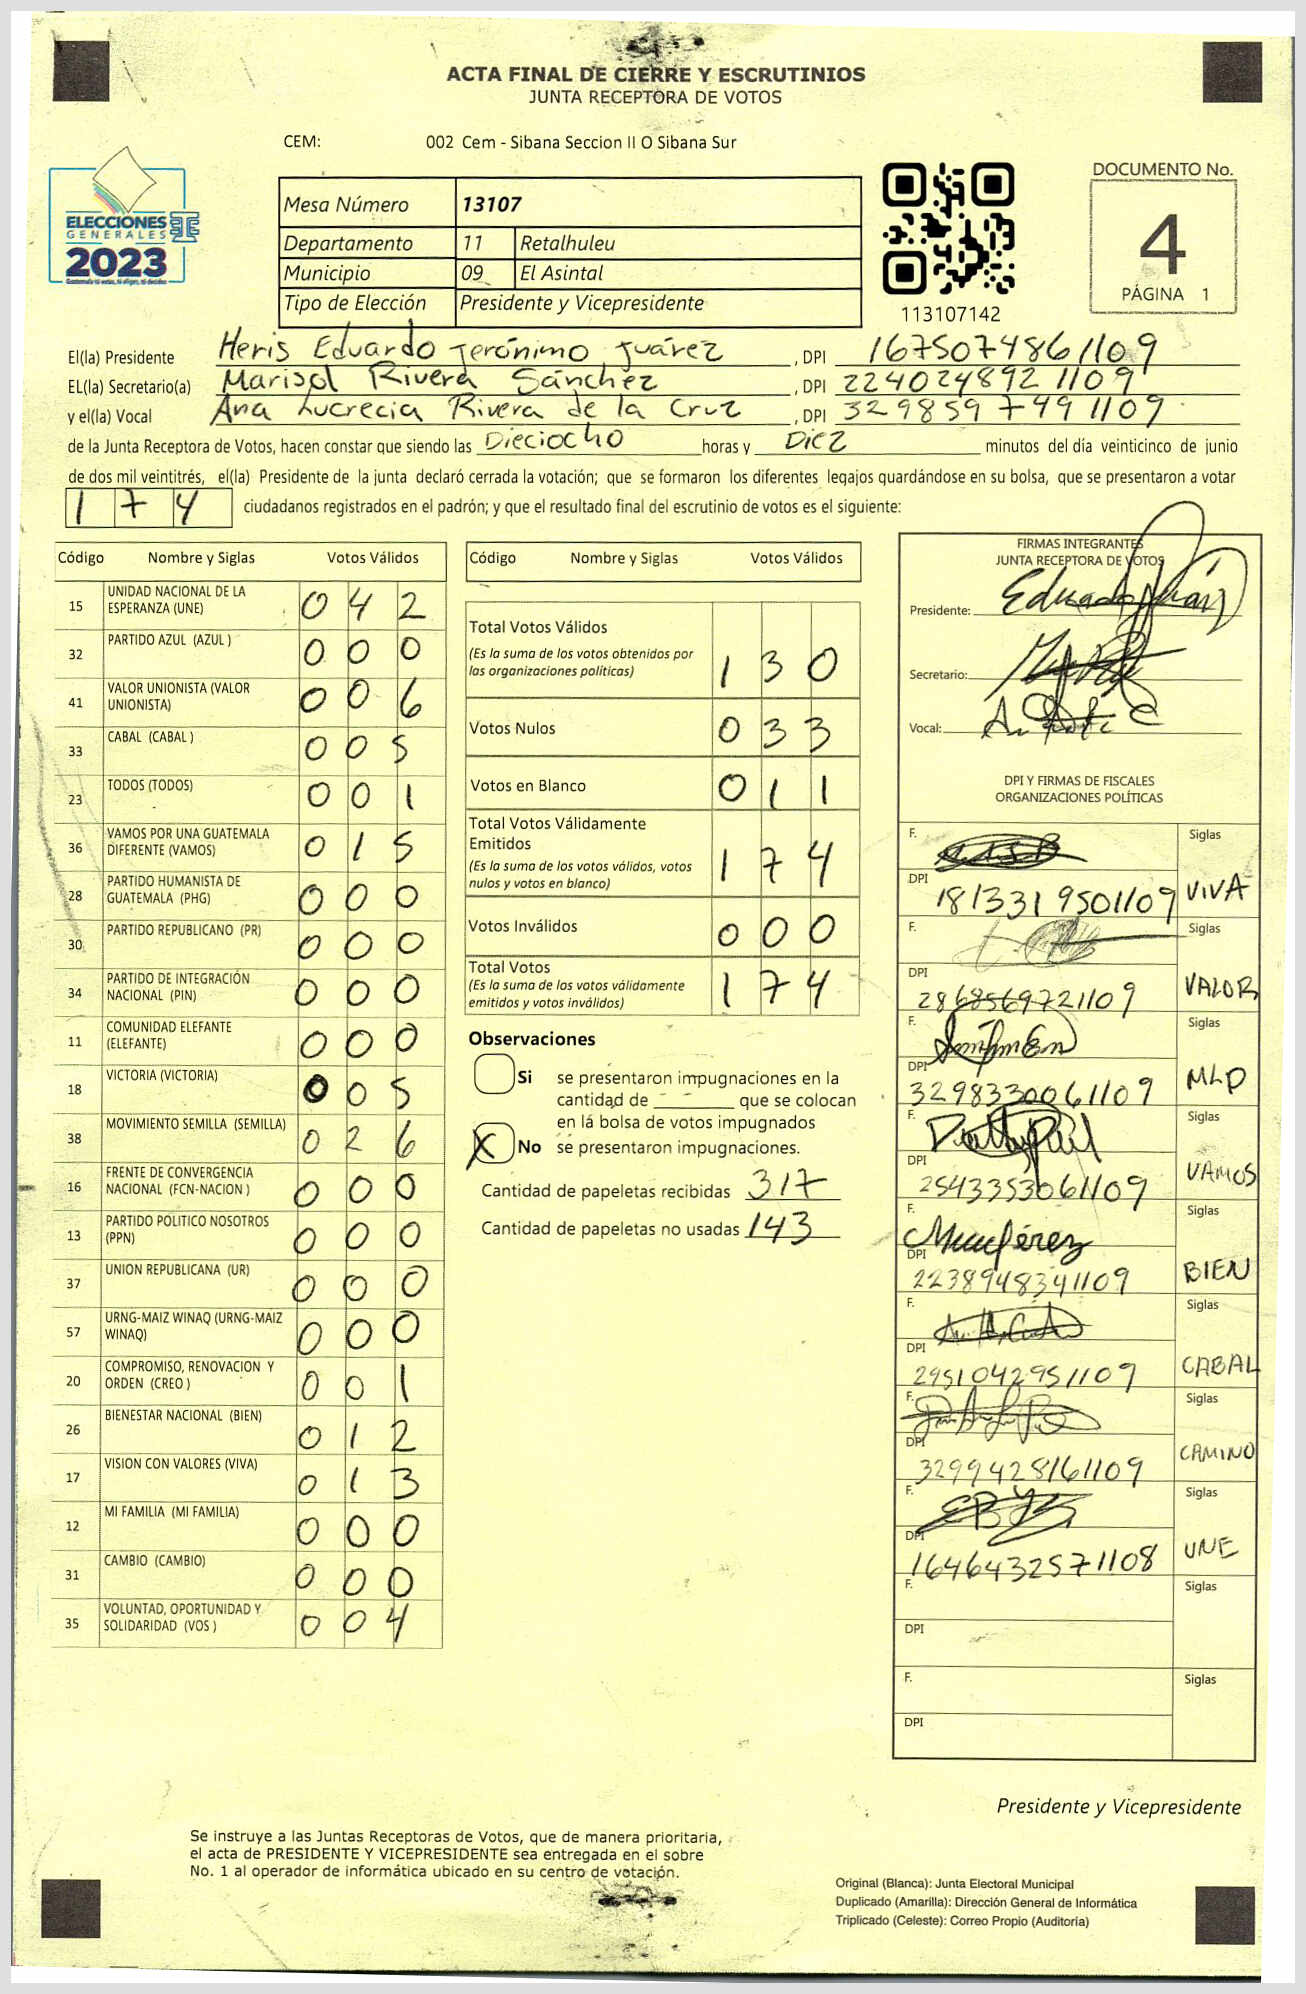 ACTA FINAL DE CIERRE Y ESCRUTINIOS
JUNTA RECEPTORA DE VOTOS
CEM: 002 Cem - Sibana Seccion II O Sibana Sur
ELECCIONES
GENERALES
2023
Mesa Número 13107
Departamento 11 Retalhuleu
Municipio 09 El Asintal
Tipo de Elección Presidente y Vicepresidente
113107142
DOCUMENTO No.
4
PÁGINA 1
El(la) Presidente Heris Eduardo Jerónimo Juárez , DPI 1675074861109
EL(la) Secretario(a) Marisol Rivera Sánchez , DPI 2240248921109
y el(la) Vocal Ana Lucrecia Rivera de la Cruz , DPI 3298597491109
de la Junta Receptora de Votos, hacen constar que siendo las Dieciocho horas y Diez minutos del día veinticinco de junio
de dos mil veintitrés, el(la) Presidente de la junta declaró cerrada la votación; que se formaron los diferentes legajos guardándose en su bolsa, que se presentaron a votar
174 ciudadanos registrados en el padrón; y que el resultado final del escrutinio de votos es el siguiente:
Código Nombre y Siglas Votos Válidos
15 UNIDAD NACIONAL DE LA ESPERANZA (UNE) 042
32 PARTIDO AZUL (AZUL ) 000
41 VALOR UNIONISTA (VALOR UNIONISTA) 006
33 CABAL (CABAL ) 005
23 TODOS (TODOS) 001
36 VAMOS POR UNA GUATEMALA DIFERENTE (VAMOS) 015
28 PARTIDO HUMANISTA DE GUATEMALA (PHG) 000
30 PARTIDO REPUBLICANO (PR) 000
34 PARTIDO DE INTEGRACIÓN NACIONAL (PIN) 000
11 COMUNIDAD ELEFANTE (ELEFANTE) 000
18 VICTORIA (VICTORIA) 005
38 MOVIMIENTO SEMILLA (SEMILLA) 026
16 FRENTE DE CONVERGENCIA NACIONAL (FCN-NACION ) 000
13 PARTIDO POLITICO NOSOTROS (PPN) 000
37 UNION REPUBLICANA (UR) 000
57 URNG-MAIZ WINAQ (URNG-MAIZ WINAQ) 000
20 COMPROMISO, RENOVACION Y ORDEN (CREO ) 001
26 BIENESTAR NACIONAL (BIEN) 012
17 VISION CON VALORES (VIVA) 013
12 MI FAMILIA (MI FAMILIA) 000
31 CAMBIO (CAMBIO) 000
35 VOLUNTAD, OPORTUNIDAD Y SOLIDARIDAD (VOS ) 004
Código Nombre y Siglas Votos Válidos
Total Votos Válidos
(Es la suma de los votos obtenidos por
las organizaciones políticas) 130
Votos Nulos 033
Votos en Blanco 011
Total Votos Válidamente
Emitidos
(Es la suma de los votos válidos, votos
nulos y votos en blanco) 174
Votos Inválidos 000
Total Votos
(Es la suma de los votos válidamente
emitidos y votos inválidos) 174
Observaciones
Si se presentaron impugnaciones en la
cantidad de - - que se colocan
en la bolsa de votos impugnados
X No se presentaron impugnaciones.
Cantidad de papeletas recibidas 317
Cantidad de papeletas no usadas 143
FIRMAS INTEGRANTES
JUNTA RECEPTORA DE VOTOS
Presidente:
Secretario:
Vocal:
DPI Y FIRMAS DE FISCALES
ORGANIZACIONES POLÍTICAS
F. Siglas
DPI 1813319501109 VIVA
F. Siglas
DPI 2868569721109 VALOR
F. Siglas
DPI 3298330061109 MLP
F. Siglas
DPI 2543353061109 VAMOS
F. Siglas
DPI 2238948341109 BIEN
F. Siglas
DPI 2951042951109 CABAL
F. Siglas
DPI 3299428161109 CAMINO
F. Siglas
DPI 1646432571108 UNE
F. Siglas
DPI
F. Siglas
DPI
Presidente y Vicepresidente
Se instruye a las Juntas Receptoras de Votos, que de manera prioritaria,
el acta de PRESIDENTE Y VICEPRESIDENTE sea entregada en el sobre
No. 1 al operador de informática ubicado en su centro de votación.
Original (Blanca): Junta Electoral Municipal
Duplicado (Amarilla): Dirección General de Informática
Triplicado (Celeste): Correo Propio (Auditoría)